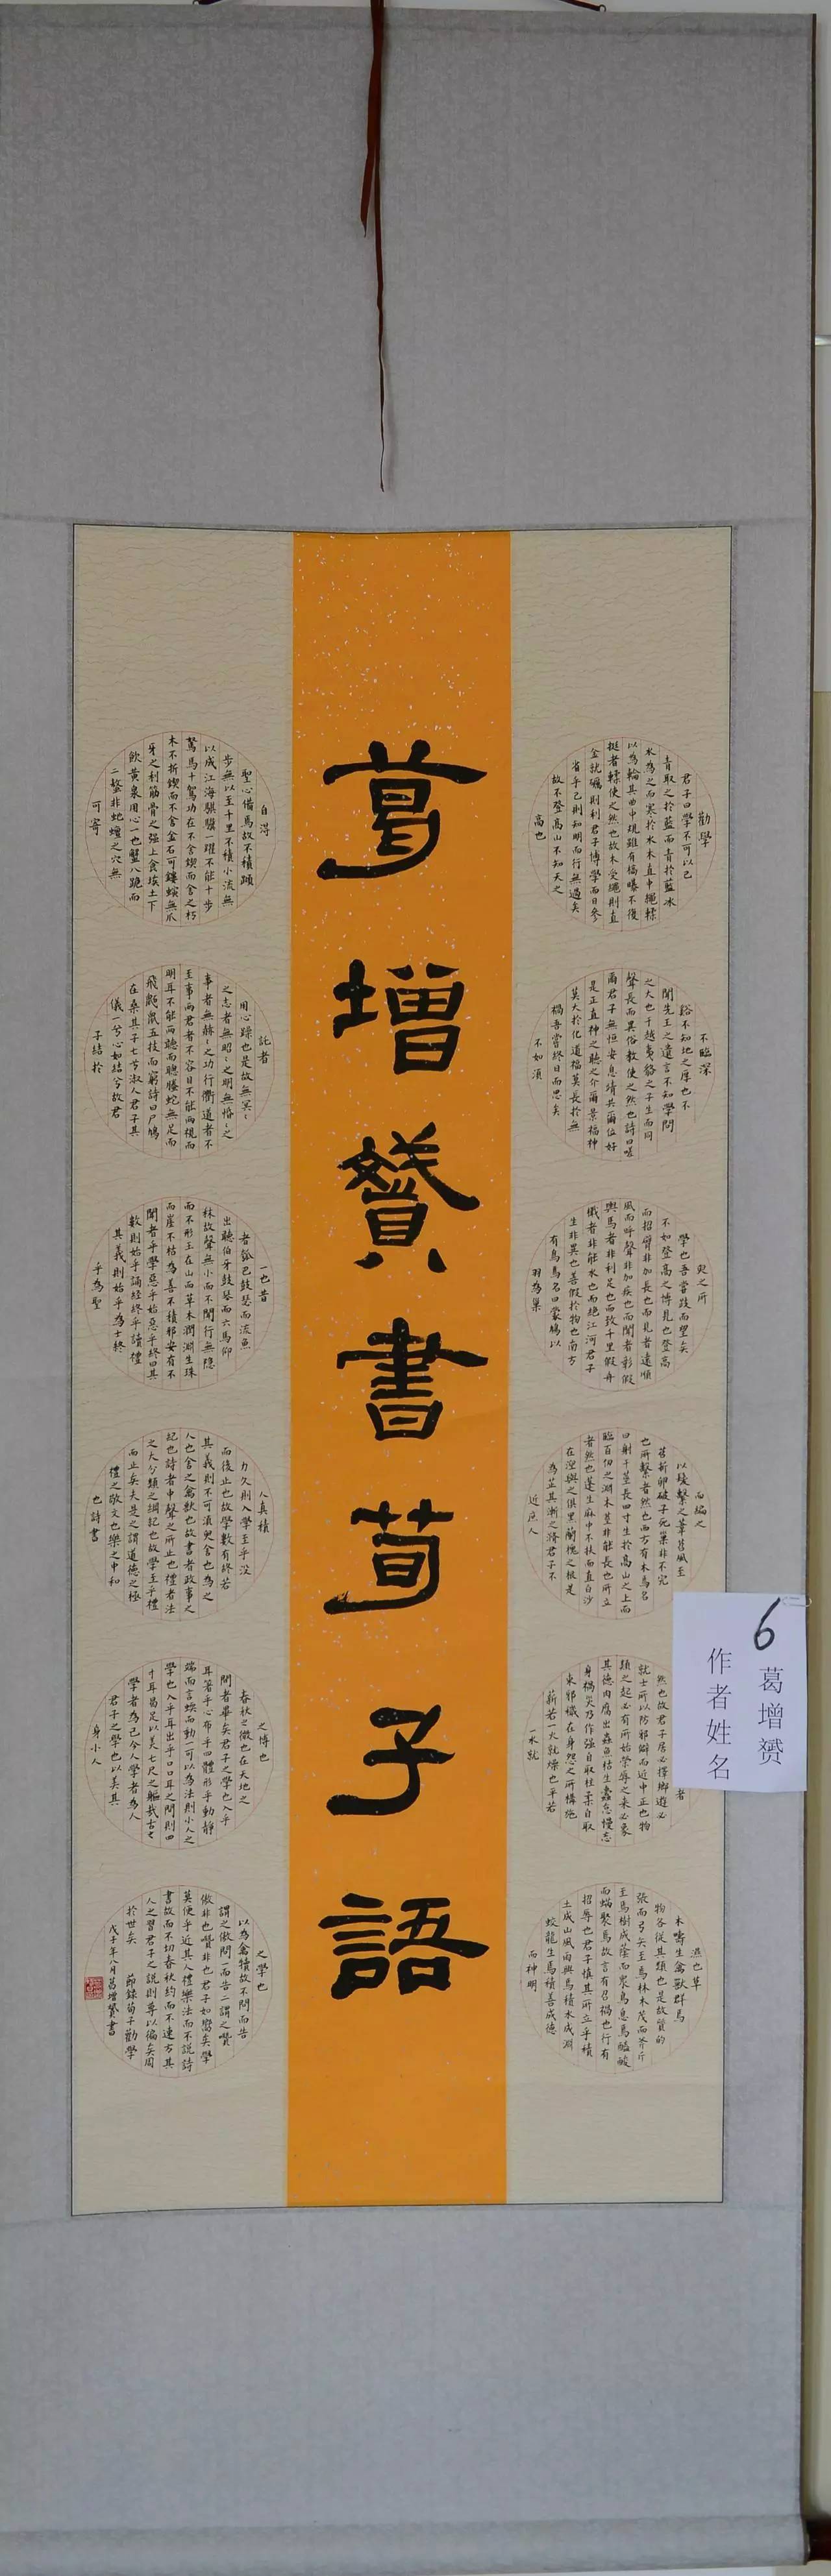 葛增贇書荀子語
勸學
君子曰學不可以已
青取之於藍而青於藍冰
水為之而寒於水木直中繩輮
以為輪其曲中規雖有槁曝不復
挺者輮使之然也故木受繩則直
金就礪則利君子博學而日參
省乎己則知明而行無過矣
故不登高山不知天之
高也
不臨深
谿不知地之厚也不
聞先王之遺言不知學問
之大也干越夷貉之子生而同
聲長而異俗教使之然也詩曰嗟
爾君子無恒安息靖共爾位好
是正直神之聽之介爾景福神
莫大於化道福莫長於無
禍吾嘗終日而思矣
不如須
臾之所
學也吾嘗跂而望矣
不如登高之博見也登高
而招臂非加長也而見者遠順
風而呼聲非加疾也而聞者彰假
輿馬者非利足也而致千里假舟
檝者非能水也而絕江河君子
生非異也善假於物也南方
有鳥焉名曰蒙鳩以
羽為巢
而編之
以髮繫之葦苕風至
苕折卵破子死巢非不完
也所繫者然也西方有木焉名
曰射干莖長四寸生於高山之上而
臨百仞之淵木莖非能長也所立
者然也蓬生麻中不扶而直白沙
在涅與之俱黑蘭槐之根是
為芷其漸之滫君子不
近庶人
者
然也故君子居必擇鄉遊必
就士所以防邪僻而近中正也物
類之起必有所始榮辱之來必象
其德肉腐出蟲魚枯生蠹怠慢忘
身禍災乃作強自取柱柔自取
束邪穢在身怨之所構施
薪若一火就燥也平若
一水就
濕也草
木疇生禽獸群焉
物各從其類也是故質的
張而弓矢至焉林木茂而斧斤
至焉樹成蔭而衆鳥息焉醯酸
而蜹聚焉故言有召禍也行有
招辱也君子慎其所立乎積
土成山風雨興焉積水成淵
蛟龍生焉積善成德
而神明
自得
聖心備焉故不積蹞
步無以至千里不積小流無
以成江海騏驥一躍不能十步
駑馬十駕功在不舍鍥而舍之朽
木不折鍥而不舍金石可鏤螾無爪
牙之利筋骨之强上食埃土下
飲黃泉用心一也蟹八跪而
二螯非虵蟺之穴無
可寄
託者
用心躁也是故無冥〻
之志者無昭〻之明無惛〻之
事者無赫〻之功行衢道者不
至事兩君者不容目不能兩視而
明耳不能兩聽而聰螣蛇無足而
飛鼫鼠五技而窮詩曰尸鳩
在桑其子七兮淑人君子其
儀一兮心如結兮故君
子結於
一也昔
者瓠巴鼓瑟而流魚
出聽伯牙鼓琴而六馬仰
秣故聲無小而不聞行無隱
而不形玉在山而草木潤淵生珠
而崖不枯為善不積邪安有不
聞者乎學惡乎始惡乎終曰其
數則始乎誦經終乎讀禮
其義則始乎為士終
乎為聖
人真積
力久則入學至乎沒
而後止也故學數有終若
其義則不可須臾舍也為之
人也舍之禽獸也故書者政事之
紀也詩者中聲之所止也禮者法
之大分類之綱紀也故學至乎禮
而止矣夫是之謂道德之極
禮之敬文也樂之中和
也詩書
之博也
春秋之微也在天地之
間者畢矣君子之學也入乎
耳著乎心布乎四體形乎動靜
端而言蝡而動一可以為法則小人之
學也入乎耳出乎口口耳之間則四
寸耳曷足以美七尺之軀哉古之
學者為己今人學者為人
君子之學也以美其
身小人
之學也
以為禽犢故不問而告
謂之傲問一而告二謂之囋
傲非也囋非也君子如嚮矣學
莫便乎近其人禮樂法而不説詩
書故而不切春秋約而不速方其
人之習君子之説則尊以徧矣周
於世矣 節錄荀子勸學
戊子年八月葛增贇書
6 葛增赟
作者姓名